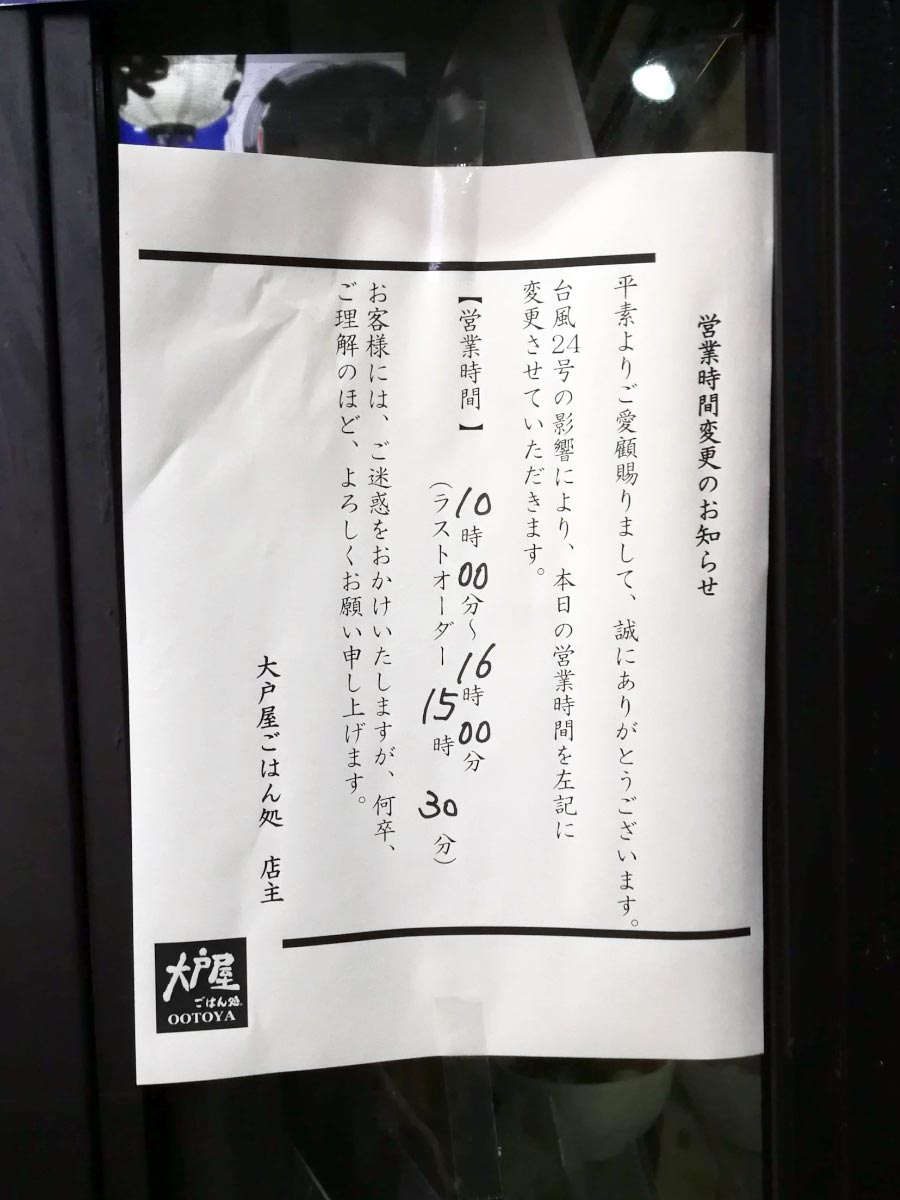 営業時間変更のお知らせ
平素よりご愛顧賜りまして、誠にありがとうございます。
台風24号の影響により、本日の営業時間を左記に
変更させていただきます。
【営業時間】 10時00分～16時00分
（ラストオーダー 15時 30分）
お客様には、ご迷惑をおかけいたしますが、何卒、
ご理解のほど、よろしくお願い申し上げます。
大戸屋ごはん処 店主
大戸屋
ごはん処
OOTOYA